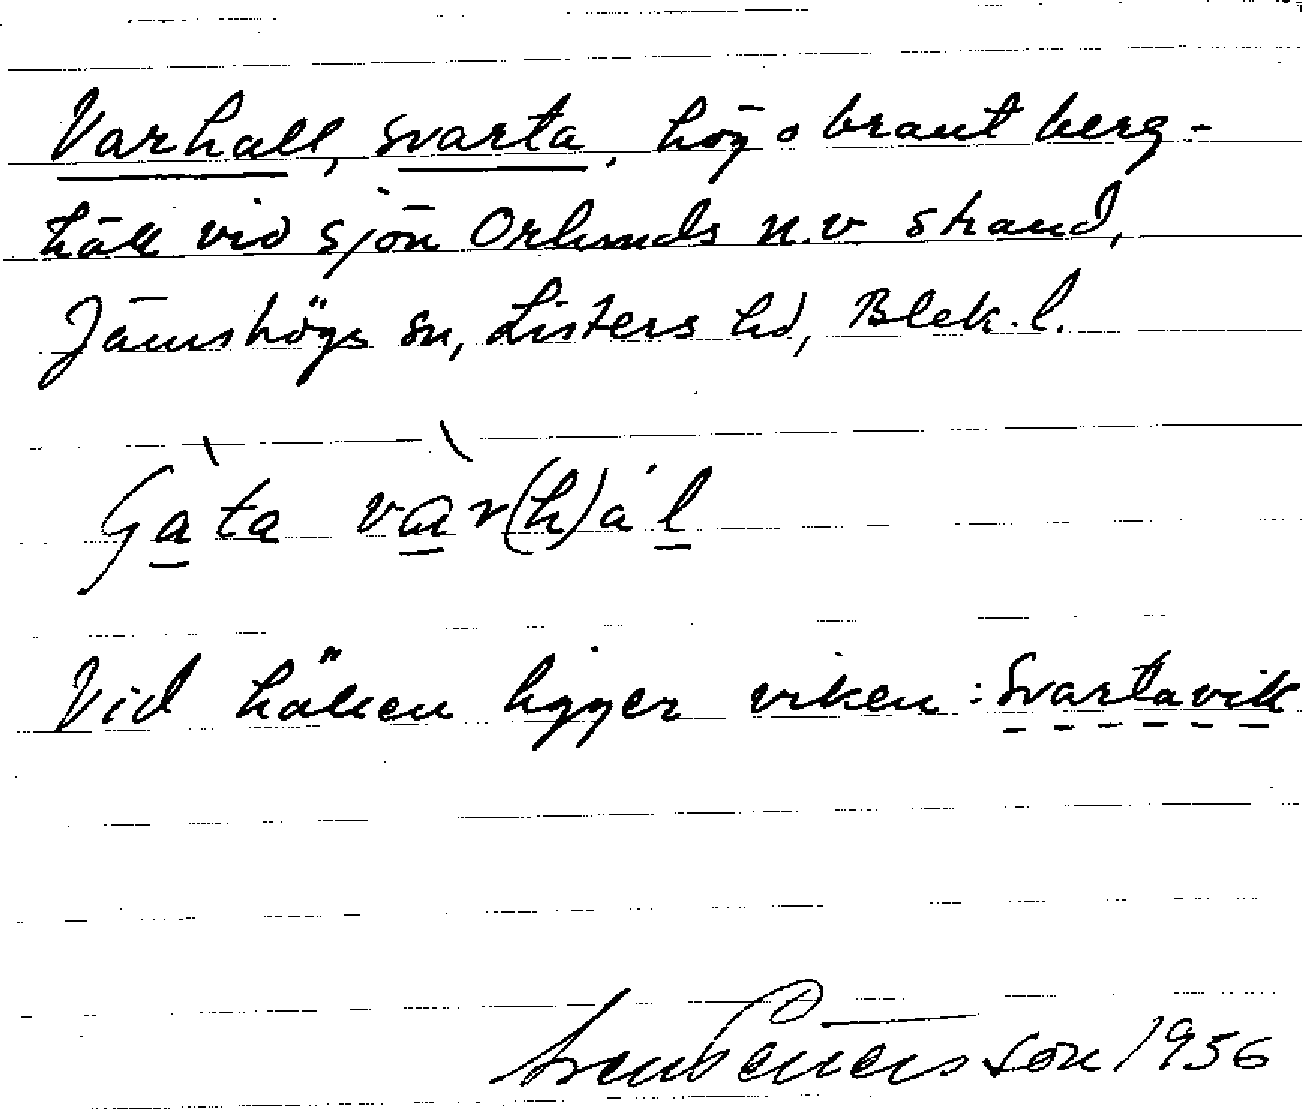 Varhall, svarta, hög o brant berg-
häll vid sjön Orlunds n.v strand,
Jämshögs sn, Listers hd, Blek. l.
Gàta vàr(h)ál
Vid hällen ligger viken: Svartavik
Sven Pettersson 1956